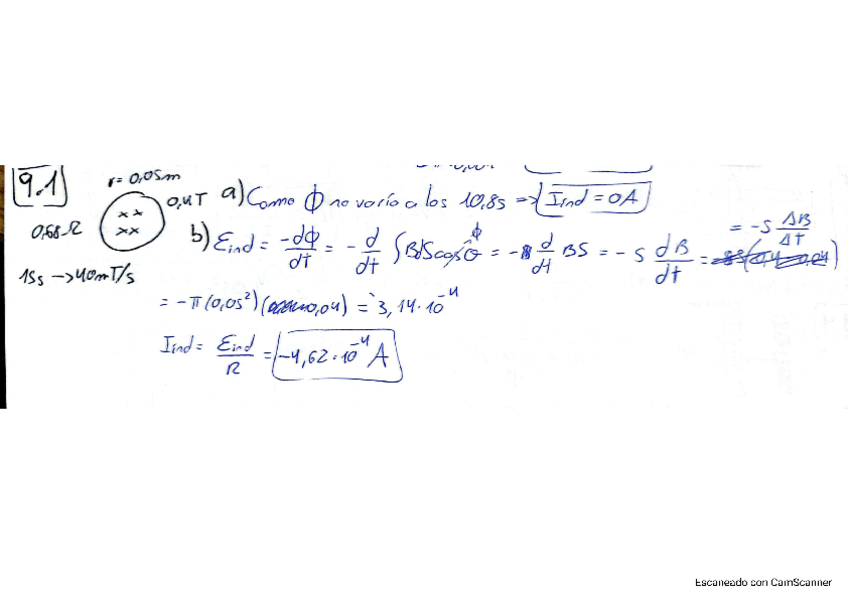 9.1
r = 0,05m
0,4T
0,68 Ω
15s → 40mT/s
a) Como ϕ no varía a los 10,8s ⇒ Iind = 0A
b) Eind = -dϕ/dT = - d/dt ∫BdScosθ = - d/dt BS = - S dB/dt = = -S ΔB/ΔT
= -π(0,05²)(0,04) = 3,14·10⁻⁴
Iind = Eind/R = -4,62·10⁻⁴ A
Escaneado con CamScanner